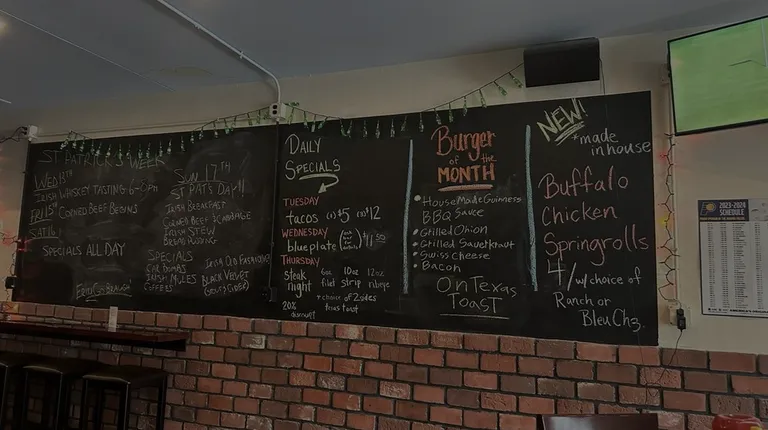 ST PATRICK'S WEEK
WED 13TH
IRISH WHISKEY TASTING 6-8PM
FRI 15TH CORNED BEEF BEGINS
SAT 16TH
SPECIALS ALL DAY
SUN 17TH
ST PATS DAY!!
IRISH BREAKFAST
CORNED BEEF & CABBAGE
IRISH STEW
BREAD PUDDING
SPECIALS
CAR BOMBS
IRISH MULES
COFFEES
IRISH OLD FASHIONED
BLACK VELVET
(GOUT & CIDER)
DAILY
SPECIALS
TUESDAY
tacos $5 $12
WEDNESDAY
blue plate
THURSDAY
steak night
6oz filet
10oz strip
12oz ribeye
+ choice of 2 sides
20%
discount
Burger
of the
MONTH
• House Made Guinness
BBQ Sauce
• Grilled Onion
• Grilled Sauerkraut
• Swiss Cheese
• Bacon
On Texas
TOAST
NEW!
*made
in house
Buffalo
Chicken
Springrolls
4/ w/ choice of
Ranch or
Bleu Chz.
2023-2024
SCHEDULE